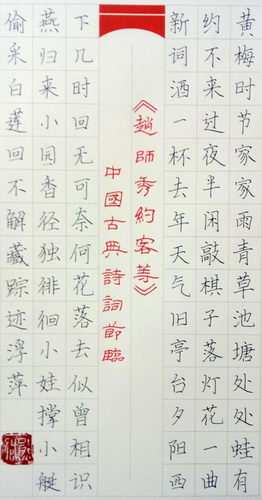 黄梅时节家家雨青草池塘处处蛙有
约不来过夜半闲敲棋子落灯花一曲
新词酒一杯去年天气旧亭台夕阳西
《趙師秀約客等》
中國古典詩詞節臨
下几时回无可奈何花落去似曾相识
燕归来小园香径独徘徊小娃撑小艇
偷采白莲回不解藏踪迹浮萍